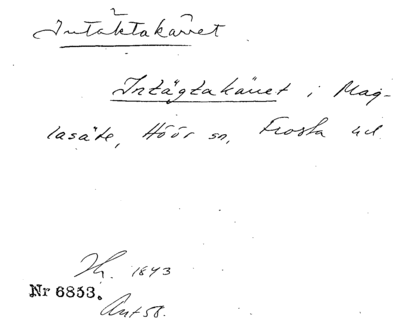 Intäktakärret
Intägtakärret i Mag-
lasäte, Höör sn, Frosta hd
Th. 1843
Nr 6853.
Ant 58.